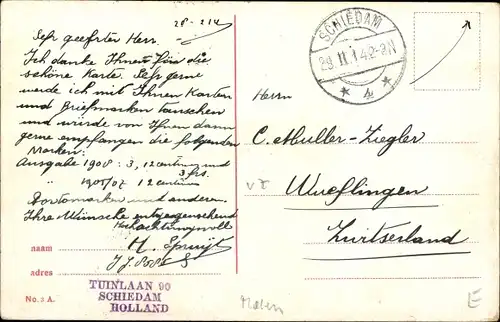 28-2-14
Sehr geehrter Herr.
Ich danke Ihnen für die
schöne Karte. Sehr gerne
werde ich mit Ihnen Karten
und Briefmarken tauschen
und würde von Ihnen dann
gerne empfangen die folgenden
Marken:
Ausgabe 1908: 3, 12 centimes und
3 frs.
" 1905/07 12 centimes
Portomarken und andern.
Ihre Wünsche entgegensehend
Hochachtungsvoll
H. Spruijt
naam
adres
TUINLAAN 90
SCHIEDAM
HOLLAND
No. 2 A.
SCHIEDAM
4
Herrn
C. Muller-Ziegler
Wueflingen
Zwitserland
E